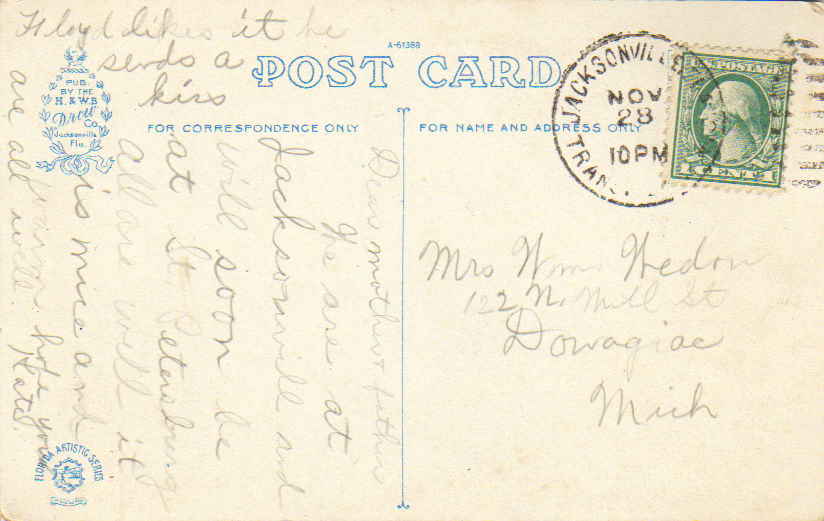 A-61388
POST CARD
PUB.
BY THE
H. & W.B.
Drew
Co.
Jacksonville,
Fla.
FOR CORRESPONDENCE ONLY
FOR NAME AND ADDRESS ONLY
JACKSONVILLE
NOV
28
10PM
TRAN
POSTAGE
Dear mother & father
We are at
Jacksonvill and
will soon be
at St. Petersburg
all are well it
is nice and
warm hope you
are all well. Kate.
Floyd likes it he
sends a
kiss
Mrs Wm
122 N. Mill St
Dowagiac
Mich
FLORIDA ARTISTIC SERIES